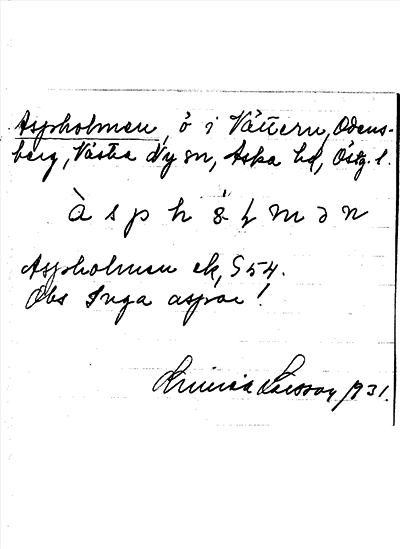 Aspholmen, ö i Vättern, Odens-
berg, Västra Ny sn, Aska hd, Östg. l.
Aspholmen ek, S 54.
Obs Inga aspar!
Larsson 1931.